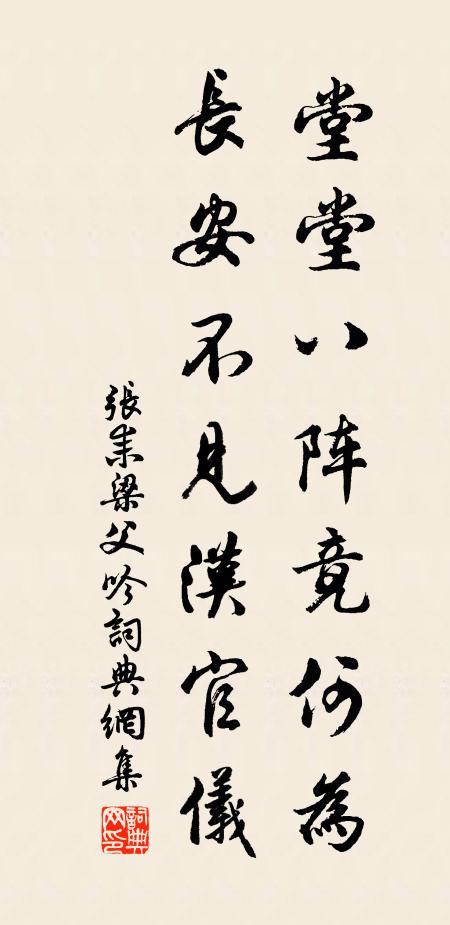 堂堂八阵竟何為
長安不見漢官儀
張耒梁父吟詞典網集
詞典网印